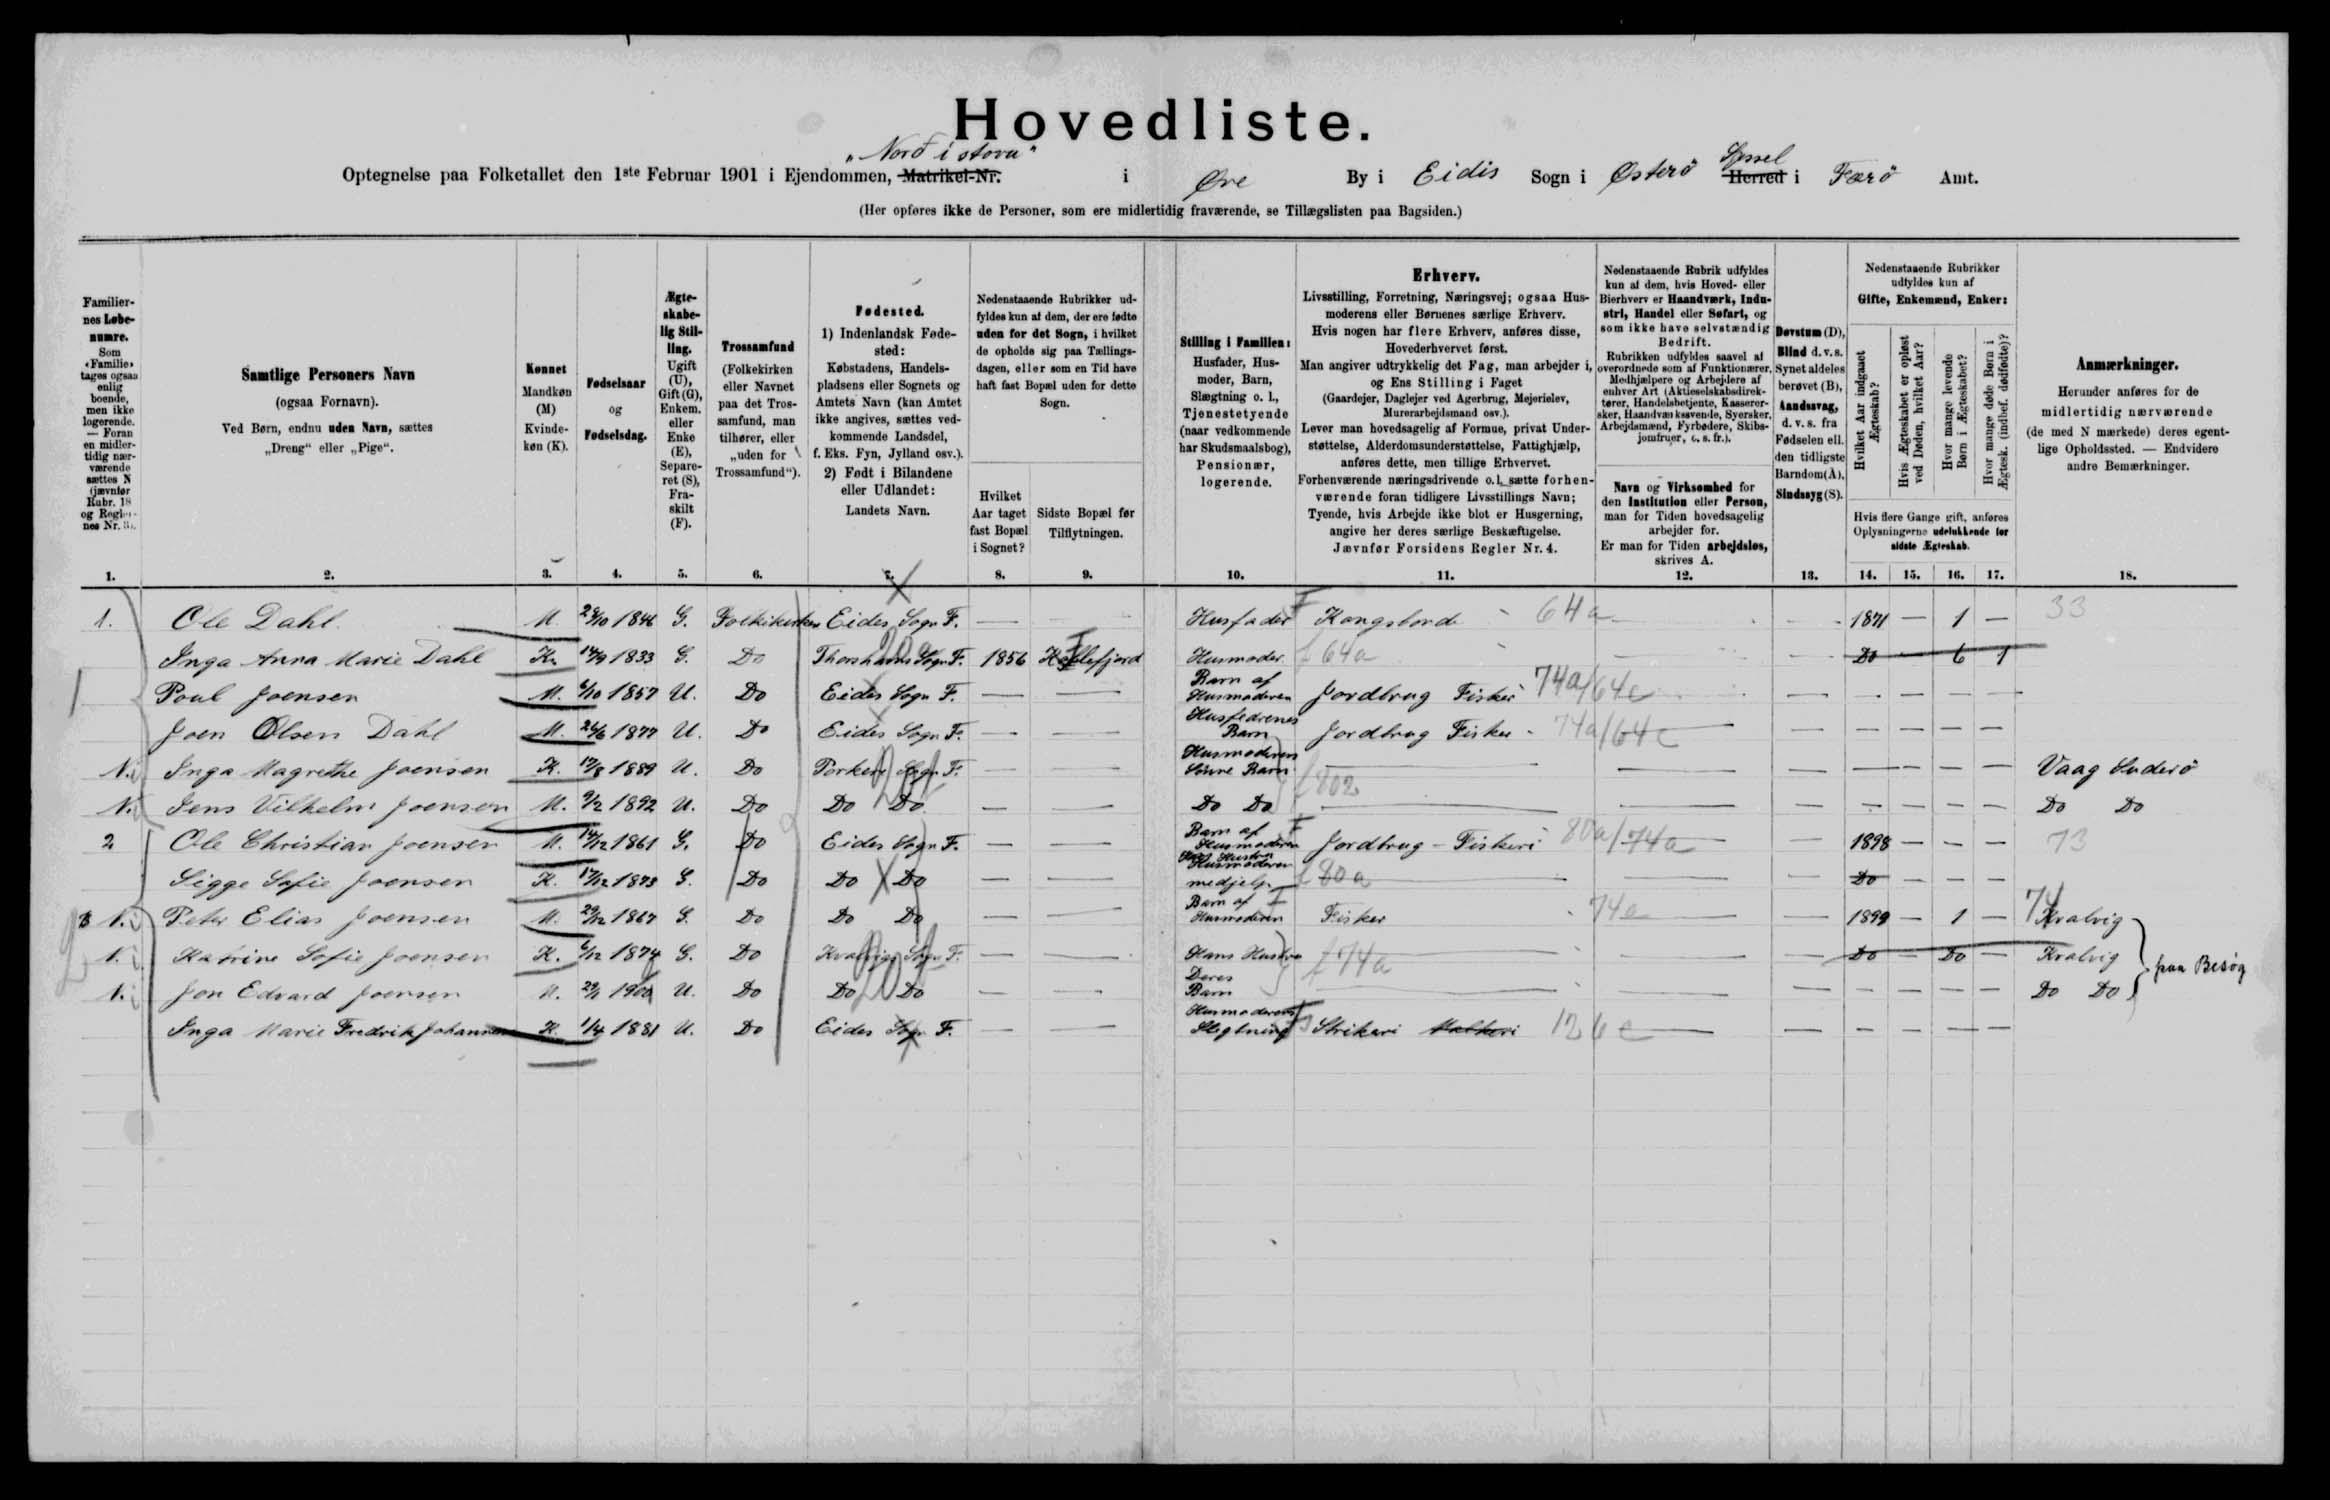 Hovedliste.
Optegnelse paa Folketallet den 1ste Februar 1901 i Ejendommen, Matrikel-Nr. „Norð i stovu" i Øre By i Eidis Sogn i Østerö Herred Syssel i Færö Amt.
(Her opføres ikke de Personer, som ere midlertidig fraværende, se Tillægslisten paa Bagsiden.)
Familiernes Løbenumre. Som «Familie» tages ogsaa enlig boende, men ikke logerende. — Foran en midlertidig nærværende sættes N (jævnfør Rubr. 18 og Reglernes Nr. 3).
Samtlige Personers Navn (ogsaa Fornavn). Ved Børn, endnu uden Navn, sættes „Dreng" eller „Pige".
Kønnet Mandkøn (M) Kvindekøn (K).
Fødselsaar og Fødselsdag.
Ægteskabelig Stilling. Ugift (U), Gift (G), Enkem. eller Enke (E), Separeret (S), Fraskilt (F).
Trossamfund (Folkekirken eller Navnet paa det Trossamfund, man tilhører, eller „uden for Trossamfund").
Fødested. 1) Indenlandsk Fødested: Købstadens, Handelspladsens eller Sognets og Amtets Navn (kan Amtet ikke angives, sættes vedkommende Landsdel, f. Eks. Fyn, Jylland osv.). 2) Født i Bilandene eller Udlandet: Landets Navn.
Nedenstaaende Rubrikker udfyldes kun af dem, der ere fødte uden for det Sogn, i hvilket de opholde sig paa Tællingsdagen, eller som en Tid have haft fast Bopæl uden for dette Sogn.
Hvilket Aar taget fast Bopæl i Sognet?
Sidste Bopæl før Tilflytningen.
Stilling i Familien: Husfader, Husmoder, Barn, Slægtning o. l., Tjenestetyende (naar vedkommende har Skudsmaalsbog), Pensionær, logerende.
Erhverv.
Livsstilling, Forretning, Næringsvej; ogsaa Husmoderens eller Børnenes særlige Erhverv.
Hvis nogen har flere Erhverv, anføres disse, Hovederhvervet først.
Man angiver udtrykkelig det Fag, man arbejder i, og Ens Stilling i Faget (Gaardejer, Daglejer ved Agerbrug, Mejerielev, Murerarbejdsmand osv.).
Lever man hovedsagelig af Formue, privat Understøttelse, Alderdomsunderstøttelse, Fattighjælp, anføres dette, men tillige Erhvervet.
Forhenværende næringsdrivende o.l. sætte forhenværende foran tidligere Livsstillings Navn; Tyende, hvis Arbejde ikke blot er Husgerning, angive her deres særlige Beskæftigelse.
Jævnfør Forsidens Regler Nr. 4.
Nedenstaaende Rubrik udfyldes kun af dem, hvis Hoved- eller Bierhverv er Haandværk, Industri, Handel eller Søfart, og som ikke have selvstændig Bedrift.
Rubrikken udfyldes saavel af overordnede som af Funktionærer, Medhjælpere og Arbejdere af enhver Art (Aktieselskabsdirektører, Handelsbetjente, Kasserersker, Haandværkssvende, Syersker, Arbejdsmænd, Fyrbødere, Skibsjomfruer, o. s. fr.).
Navn og Virksomhed for den Institution eller Person, man for Tiden hovedsagelig arbejder for.
Er man for Tiden arbejdsløs, skrives A.
Døvstum (D), Blind d. v. s. Synet aldeles berøvet (B), Aandssvag, d. v. s. fra Fødselen ell. den tidligste Barndom (A), Sindssyg (S).
Nedenstaaende Rubrikker udfyldes kun af Gifte, Enkemænd, Enker:
Hvilket Aar indgaaet Ægteskab?
Hvis Ægteskabet er opløst ved Døden, hvilket Aar?
Hvor mange levende Børn i Ægteskabet?
Hvor mange døde Børn i Ægtesk. (indbef. dødfødte)?
Hvis flere Gange gift, anføres Oplysningerne udelukkende for sidste Ægteskab.
Anmærkninger. Herunder anføres for de midlertidig nærværende (de med N mærkede) deres egentlige Opholdssted. — Endvidere andre Bemærkninger.
1. 2. 3. 4. 5. 6. 7. 8. 9. 10. 11. 12. 13. 14. 15. 16. 17. 18.
1. Ole Dahl M. 1846 G. Folkekirken Eides Sogn F. — — Husfader Kongsbonde 64a 1871 — 1 — 33
Inga Anna Marie Dahl K. 14/9 1833 G. Do Thorshavns Sogn F. 1856 Kollefjord Husmoder f 64a Do — 6 1
Poul Joensen M. 6/10 1857 U. Do Eides Sogn F. — — Barn af Husmoderen Jordbrug Fisker 74a/64c — — — — —
Joen Olsen Dahl M. 26/6 1877 U. Do Eides Sogn F. — — Husfedrenes Barn Jordbrug Fisker 74a/64c — — — — —
N. Inga Magrethe Joensen K. 1889 U. Do Porkere Sogn F. — — Husmoderens Sønne Barn — — — — — — — Vaag Suderö
N. Jens Vilhelm Joensen M. 9/2 1892 U. Do Do Do — — Do Do f 802 — — — — — — — Do Do
2 Ole Christian Joensen M. 14/12 1861 G. Do Eides Sogn F. — — Barn af Husmoderen Jordbrug - Fiskeri 80a/74a — 1898 — — — 73
Sigge Sofie Joensen K. 17/12 1873 G. Do Do Do — — Hans Hustru Husmoderen medjelp f 80a — — — Do — — —
3 N. Peter Elias Joensen M. 29/12 1867 G. Do Do Do — — Barn af Husmoderen Fisker 74a — 1899 — 1 — 74 Kvalvig
N. Katrine Sofie Joensen K. 6/12 1874 G. Do Kvalvigs Sogn F. — — Hans Hustru f 74a — — Do — Do — Kvalvig paa Besøg
N. Jon Edvard Joensen M. 1900 U. Do Do Do — — Deres Barn — — — — — — — Do Do
Inga Marie Fredrik Johannesen K. 1/4 1881 U. Do Eides Sogn F. — — Husmoderens Slegtning Strikeri Malkeri 126c — — — — — —